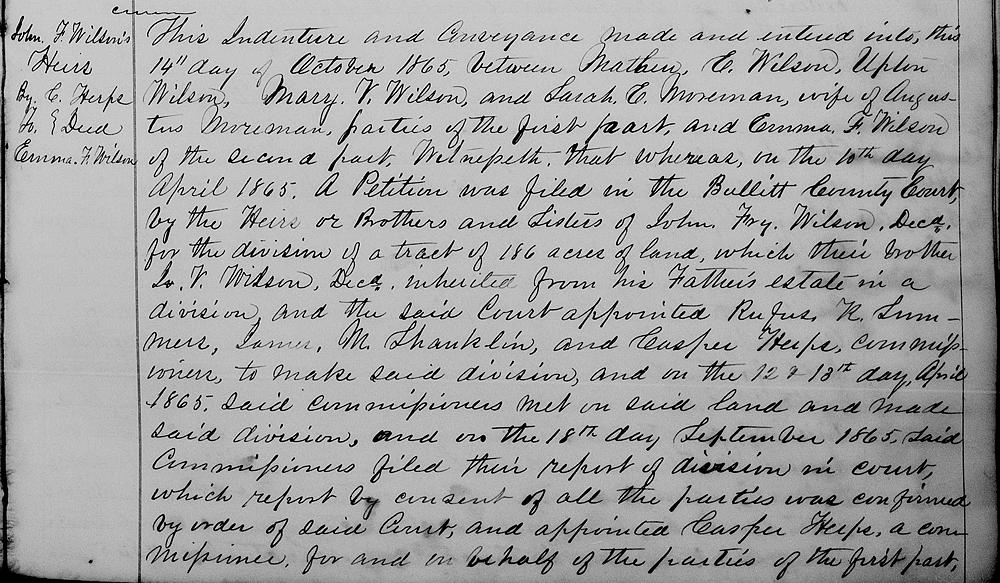 John. F. Wilson's
Heirs
By. C. Herps
To. } Deed
Emma. F. Wilson
This Indenture and Conveyance made and entered into, this
14" day of October 1865, between Mathew, E. Wilson, Upton
Wilson, Mary. V. Wilson, and Sarah. E. Moreman, wife of Augus-
tus Moreman, parties of the first part, and Emma. F. Wilson
of the second part, Witnesseth, that whereas, on the 10th day
April 1865. A Petition was filed in the Bullitt County Court,
by the Heirs or Brothers and Sisters of John. Fry. Wilson, Decd.
for the division of a tract of 186 acres of land, which their brother
V. Wilson, Decd. inherited from his Father's estate in a
division, and the said Court appointed Rufus, K. Sum-
mers, James, M. Shanklin, and Casper Herps, commiss-
ioners, to make said division, and on the 12 & 13th day April
1865. said commissioners met on said land and made
said division, and on the 18th day September 1865, said
Commissioners filed their report of division in court,
which report by consent of all the parties was confirmed
by order of said Court, and appointed Casper Herps, a com
missioner, for and on behalf of the parties of the first part,